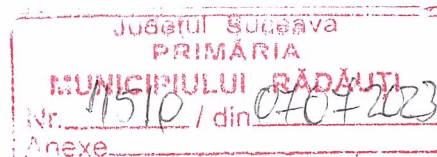 Județul Suceava
PRIMĂRIA
MUNICIPIULUI RĂDĂUȚI
Nr. 11510 / din 07072023
Anexe